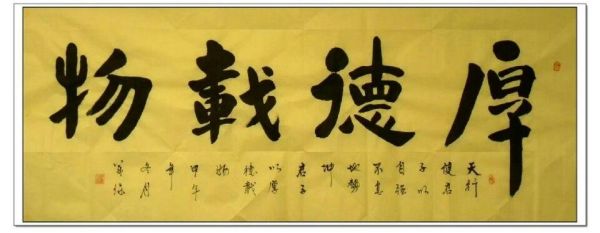 厚德載物
天行
健君
子以
自强
不息
地勢
坤
君子
以厚
德載
物
甲午
年
冬月